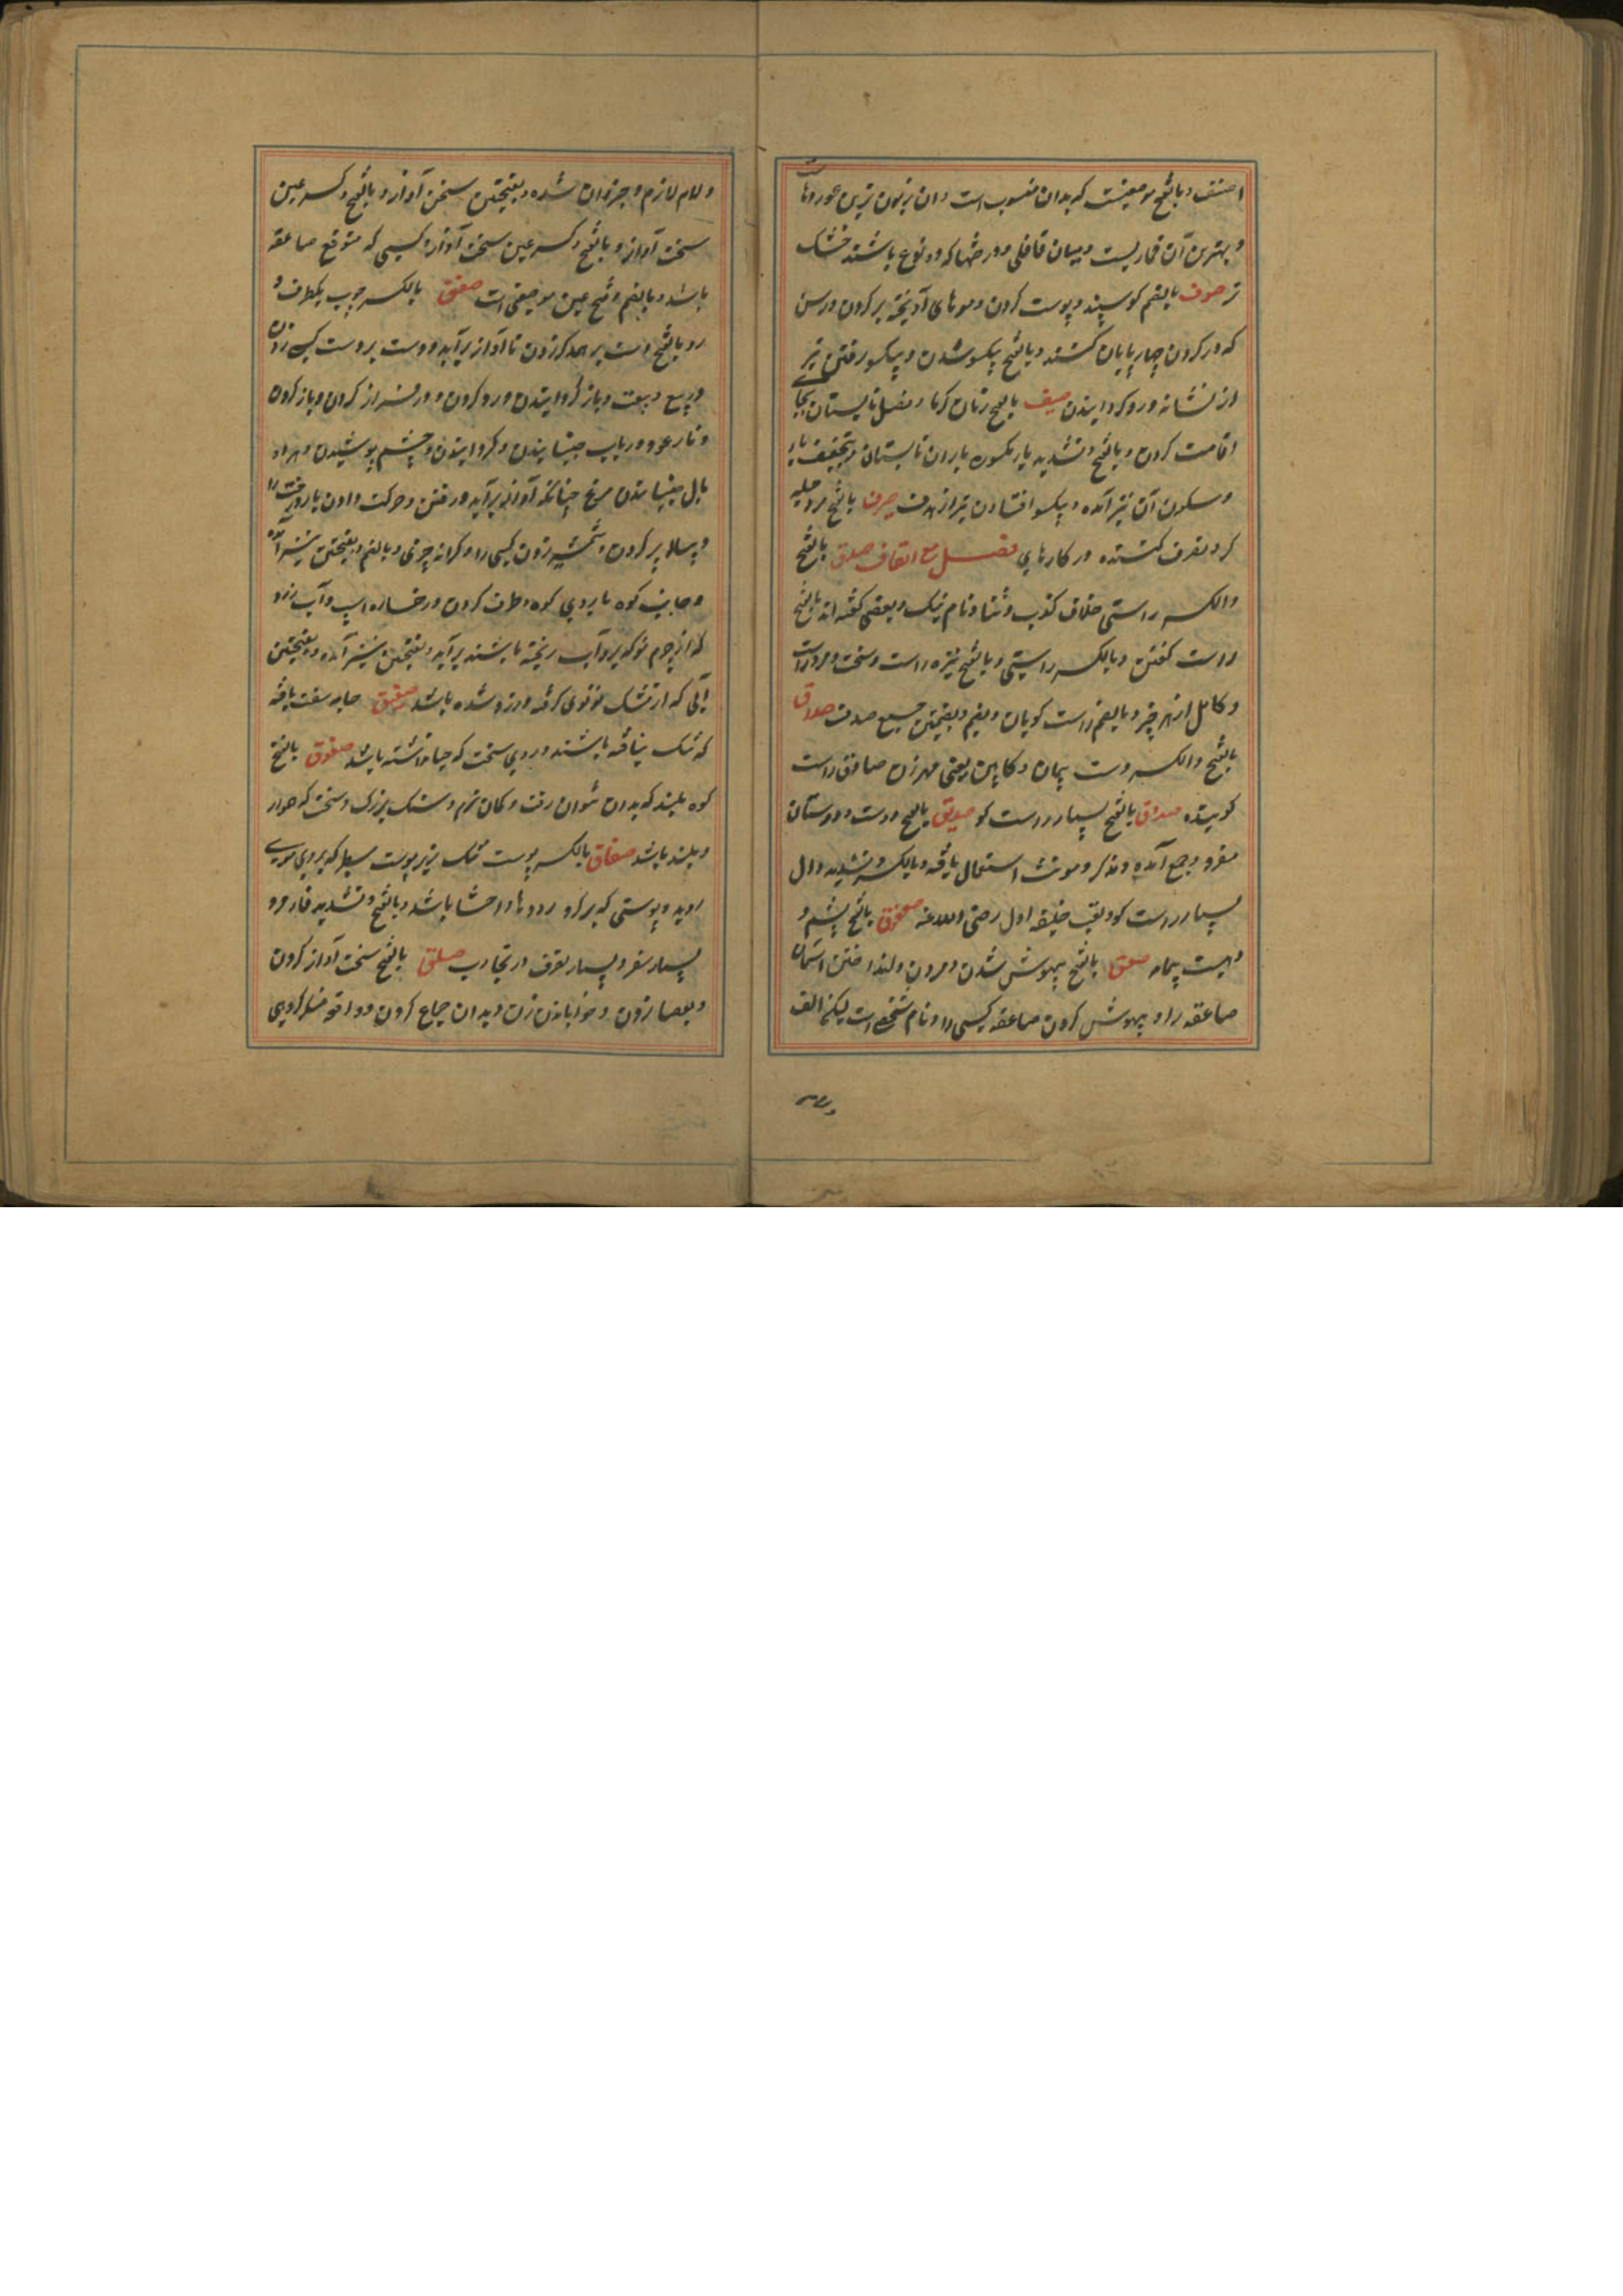 اصنف و بالفتح موضعیست که بدان منسوبست و ان زبون ترین عودهاست
و بهترین آن قماریست و میان قاقلی و درختها که دو نوع باشند خشک
تر صوف بالضم کوسپند و پوست کردن و موهای آویخته بر کردن و رسن
که در کردن چهارپایان کنند و بالفتح یکسو شدن و یکسو رفتن تیر
از نشانه و رو کردانیدن صیف بالفتح زمان کرما و فصل تابستان بجا
اقامت کردن و بالفتح و تشدید یاء مکسوره باران تابستان و بتخفیف یا
و سکون آن نیز آمده و یکسو افتادن تیر از هدف صیرف بالفتح مرد حیله
کر و تصرف کننده در کارهای فصل مع القاف صدق بالفتح
والکسر راستی خلاف کذب و ثنا و نام نیک و بعضی کفته اند بالفتح
راست کفتن و بالکسر راستی و بالفتح نیزه راست و سخت و مرد راست
و کامل از هر چیز و بالضم راست کویان و بضم و بضمتین جمع صدق صداق
بالفتح والکسر دست پیمان و کابین یعنی مهر زن صادق راست
کوینده صداق بالفتح بسیار راست کو صدیق بالفتح دوست و دوستان
مفرد و جمع آمده و مذکر و مونث استعمال یافته و بالکسر و تشدید دال
بسیار راست کو و لقب خلیفه اول رضی الله عنه صعفوق بالفتح پشم و
دهیست بیمامه صعق بالفتح بیهوش شدن و مردن و انداختن آسمان
صاعقه را و بیهوش کردن صاعقه کسی را و نام شخصی است لیکن الف
و لام لازم و جزو ان شده و بفتحتین سختی آواز و بالفتح و کسر عین
سخت آواز و بالفتح و کسر عین سخت آواز و کسی که متوقع صاعقه
باشد و بالضم و فتح عین موضعی است صفق بالکسر چوب یکطرف و
رو بالفتح دست بر همدکر زدن تا آواز برآید و دست بر دست کسی زدن
در بیع و بیعت و باز کردانیدن و رد کردن و در فراز کردن و باز کردن
و تار عود و رباب جنبانیدن و کردانیدن و چشم پوشیدن و هر دو
بال جنبانیدن مرغ چنانکه آواز برآید و رفتن و حرکت دادن باد درخت را
و پیاله پر کردن و شمشیر زدن کسی را و کرانه چیزی و بالضم و بفتحتین نیز آمده
و جانب کوه یا روی کوه و طرف کردن و رخساره اسپ و آب زرد
که از چرم نو که برو آب ریخته باشند برآید و بفتحتین نیز آمده و بفتحتین
آبی که از مشک نو توی کرفته و زرد شده باشد صفیق جامه سفت بافته
که تنک نبافته باشند و روی سخت که حیا نداشته باشد صفوق بالفتح
کوه بلند که بدان نتوان رفت و کمان نرم و سنک بزرک و سخت که هموار
و بلند باشد صفاق بالکسر پوست تنک زیر پوست سطبر که بروی موی
روید و پوستی که بر کرد روده ها و احشا باشد و بالفتح و تشدید فا مرد
بسیار سفر و بسیار تصرف در تجارب صلق بالفتح سخت آواز کردن
و بعصا زدن و خوابانیدن زن و بدان جماع کردن و واقعه مشکل کردیدن